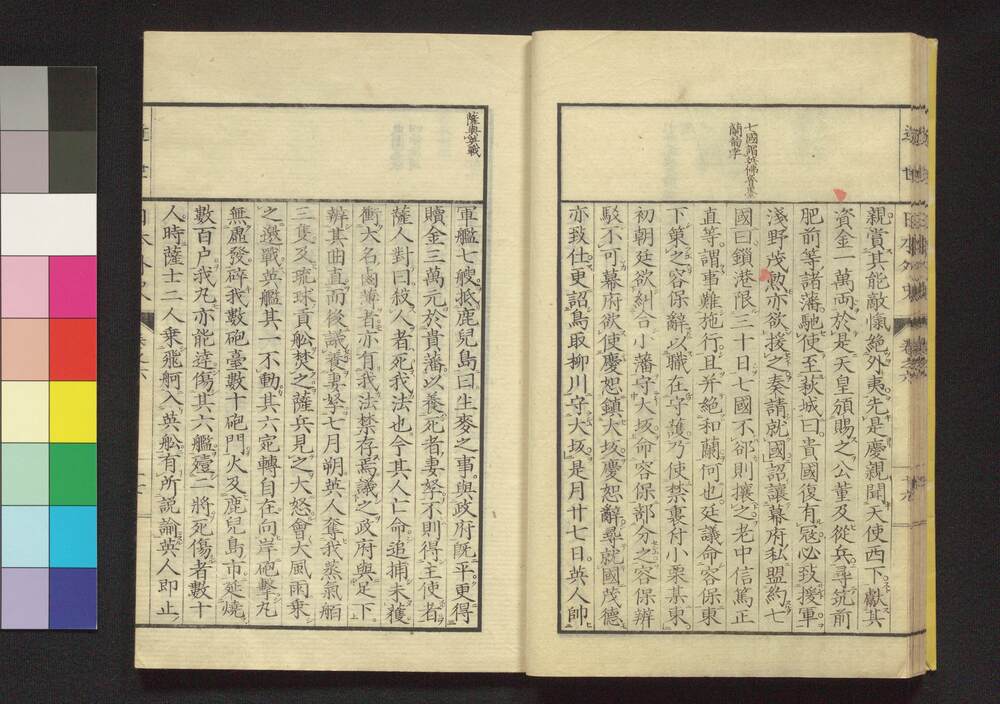 親賞其能敵愾絶外夷先是慶親聞天使西下獻其
資金一萬両於是天皇頒賜之公董及從兵尋筑前
肥前等諸藩馳使至萩城曰貴國復有冦必致援軍
淺野茂勲亦欲援之奏請就國詔讓幕府私盟約七
國曰鎖港限三十日七國不卻則攘之老中信篤正
直等謂事難施行且并絶和蘭何也廷議命容保東
下策之容保辭以職在守護乃使禁裏付小栗某東
初朝廷欲糾合小藩守大坂命容保部分之容保辨
駁不可幕府欲使慶恕鎮大坂慶恕辭尋就國茂德
亦致仕更詔鳥取柳川守大坂是月廿七日英人帥
薩與英戰
軍艦七艘抵鹿兒島曰生麥之事與政府既平更得
贖金三萬元於貴藩以養死者妻孥不則得主使者
薩人對曰殺人者死我法也今其人亡命追捕未獲
衝大名鹵簿者亦有我法禁存焉議之政府與足下
辨其曲直而後議養妻孥七月朔英人奪我蒸氣船
三隻及琉球貢舩焚之薩兵見之大怒會大風雨乘
之邀戰英艦其一不動其六宛轉自在向岸砲擊丸
無虛發碎我數砲臺數十砲門火及鹿兒島市延燒
數百户我丸亦能達傷其六艦殪二將死傷者數十
人時薩士二人乘飛舸入英舩有所説諭英人即止